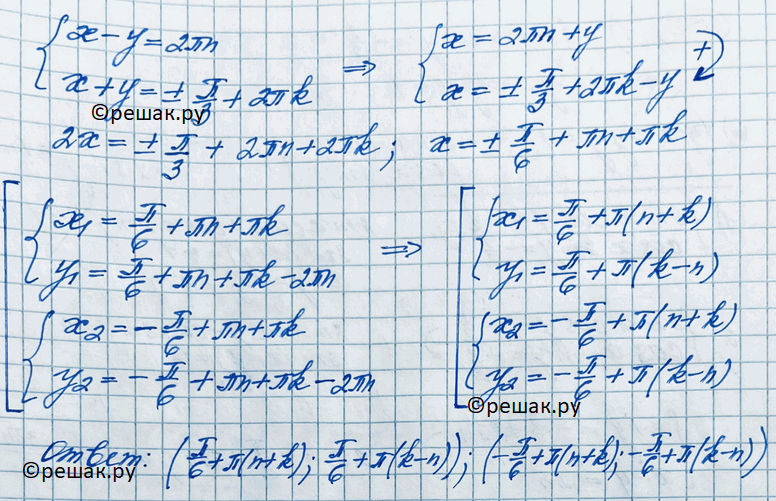 { x - y = 2πn
x + y = ± π/3 + 2πk ⇒ { x = 2πn + y
x = ± π/3 + 2πk - y +
©решак.ру
2x = ± π/3 + 2πn + 2πk; x = ± π/6 + πn + πk
[ { x₁ = π/6 + πn + πk
y₁ = π/6 + πn + πk - 2πn
{ x₂ = - π/6 + πn + πk
y₂ = - π/6 + πn + πk - 2πn
⇒ [ { x₁ = π/6 + π(n+k)
y₁ = π/6 + π(k-n)
{ x₂ = - π/6 + π(n+k)
y₂ = - π/6 + π(k-n)
©решак.ру
Ответ: (π/6 + π(n+k); π/6 + π(k-n)); (-π/6 + π(n+k); -π/6 + π(k-n))
©решак.ру